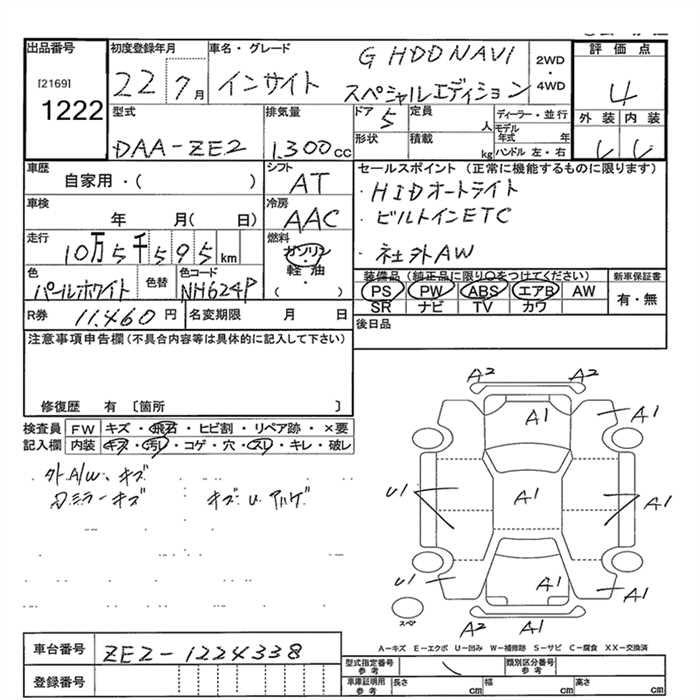 出品番号 初度登録年月 車名・グレード G HDDNAVI 2WD・4WD 評価点
[2169] 1222 22 7月 インサイト スペシャルエディション 4
型式 排気量 ドア 5 定員 人 ディーラー・並行 外装 内装
DAA-ZE2 1.300cc 形状 積載 kg モデル年式 年 ハンドル 左・右
車歴 自家用・( ) シフト AT セールスポイント(正常に機能するものに限ります)
・HIDオートライト
車検 年 月( 日) 冷房 AAC ・ビルトインETC
走行 10万5千595km 燃料 ガソリン・軽油・( ) ・社外AW
色 パールホワイト 色替 色コード NH624P 装備品(純正品に限り○をつけてください) 新車保証書
PS PW ABS エアB AW 有・無
SR ナビ TV カワ
R券 11.460円 名変期限 月 日 後日品
注意事項申告欄(不具合内容等は具体的に記入して下さい)
修復歴 有 〔箇所 〕
検査員 FW キズ・飛石・ヒビ割・リペア跡・×要
記入欄 内装 キズ・汚レ・コゲ・穴・スレ・キレ・破レ
外A/W キズ
キズ U アリ
A2 A2
A1 A1
U1 A1 A1
U1 A1 A1
スペア A2 A1
A-キズ E-エクボ U-凹み W-補修跡 S-サビ C-腐食 XX-交換済
車台番号 ZE2-1224338 型式指定番号 参考 類別区分番号 参考
登録番号 車庫証明用 参考 長さ cm 幅 cm 高さ cm